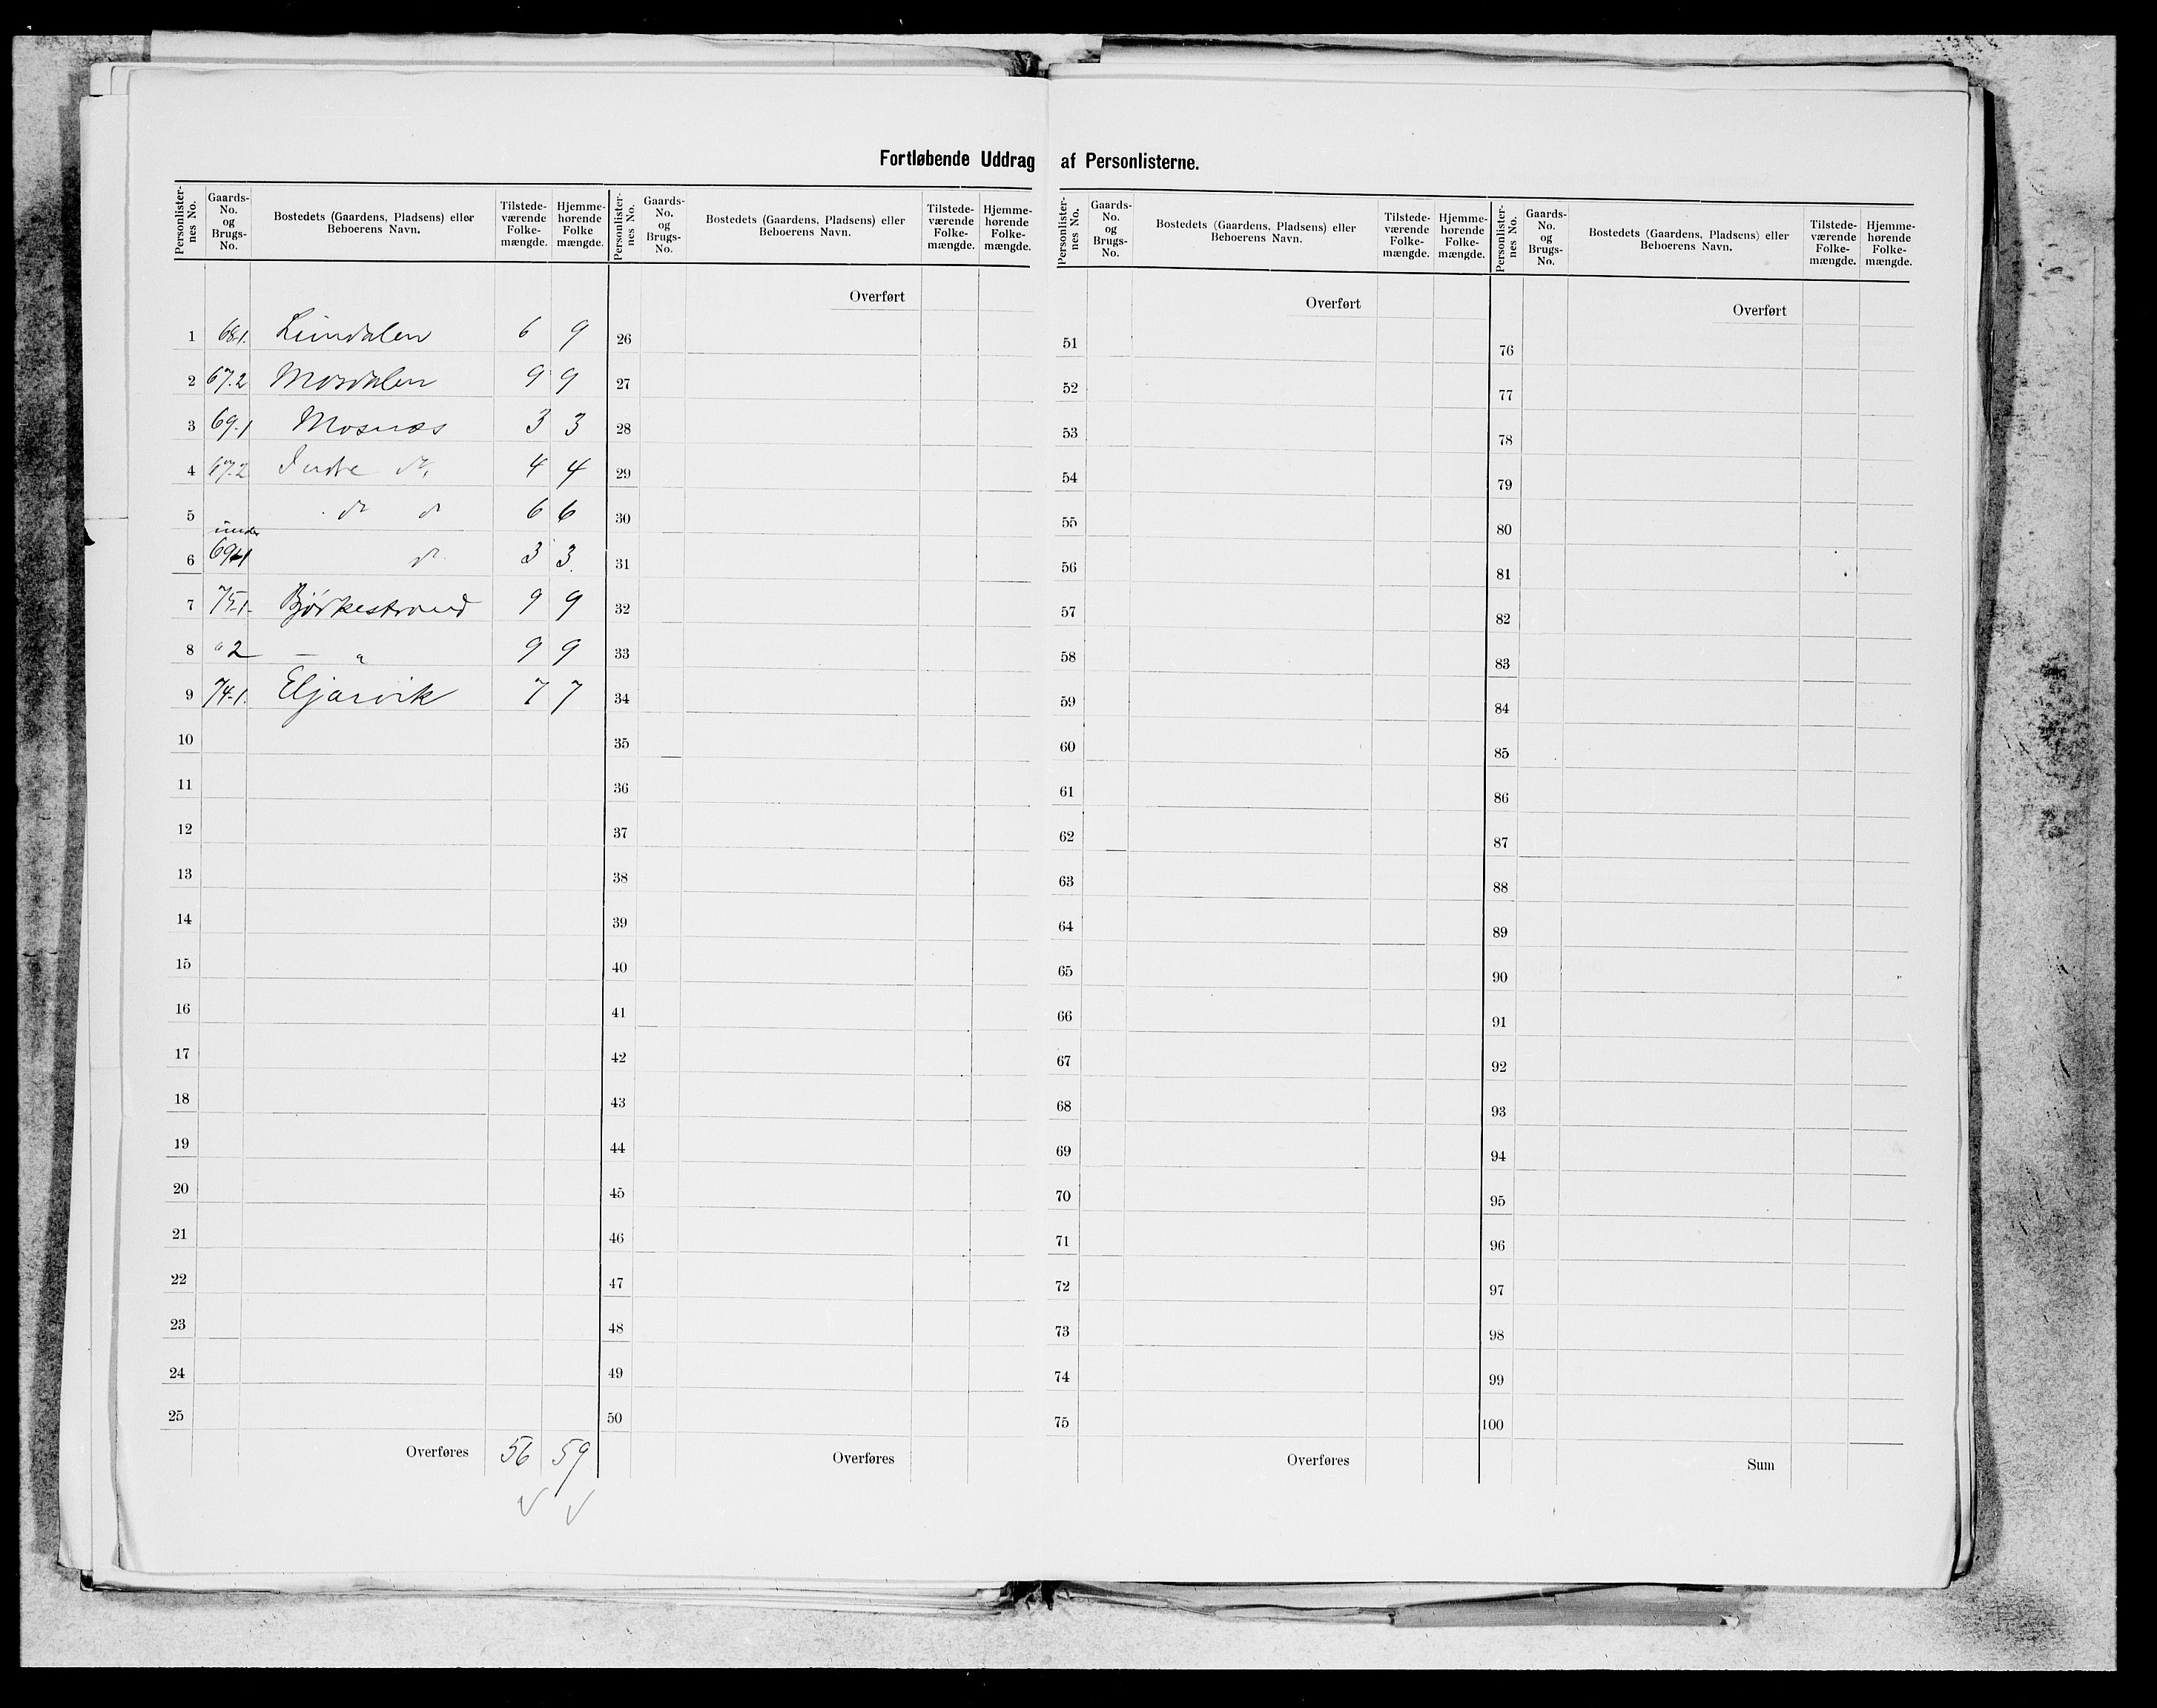 Fortløbende Uddrag af Personlisterne.
Personlister-nes No. Gaards-No. og Brugs-No. Bostedets (Gaardens, Pladsens) eller Beboerens Navn. Tilstede-værende Folke-mængde. Hjemme-hørende Folke mængde.
1 68.1. Lundalen 6 9
2 67.2 Mosdalen 9 9
3 69.1 Mosnæs 3 3
4 67.2 Indre do. 4 4
5 do do 6 6
6 under 69.1 do 3 3.
7 75.1. Bjørkestrand 9 9
8 " 2 — " 9 9
9 74.1. Eljarvik 7 7
10
11
12
13
14
15
16
17
18
19
20
21
22
23
24
25
Overføres 56 59
Personlister-nes No. Gaards-No. og Brugs-No. Bostedets (Gaardens, Pladsens) eller Beboerens Navn. Tilstede-værende Folke-mængde. Hjemme-hørende Folke-mængde.
Overført
26
27
28
29
30
31
32
33
34
35
36
37
38
39
40
41
42
43
44
45
46
47
48
49
50
Overføres
Personlister-nes No. Gaards-No. og Brugs-No. Bostedets (Gaardens, Pladsens) eller Beboerens Navn. Tilstede-værende Folke-mængde. Hjemme-hørende Folke-mængde.
Overført
51
52
53
54
55
56
57
58
59
60
61
62
63
64
65
66
67
68
69
70
71
72
73
74
75
Overføres
Personlister-nes No. Gaards-No. og Brugs-No. Bostedets (Gaardens, Pladsens) eller Beboerens Navn. Tilstede-værende Folke-mængde. Hjemme-hørende Folke-mængde.
Overført
76
77
78
79
80
81
82
83
84
85
86
87
88
89
90
91
92
93
94
95
96
97
98
99
100
Sum